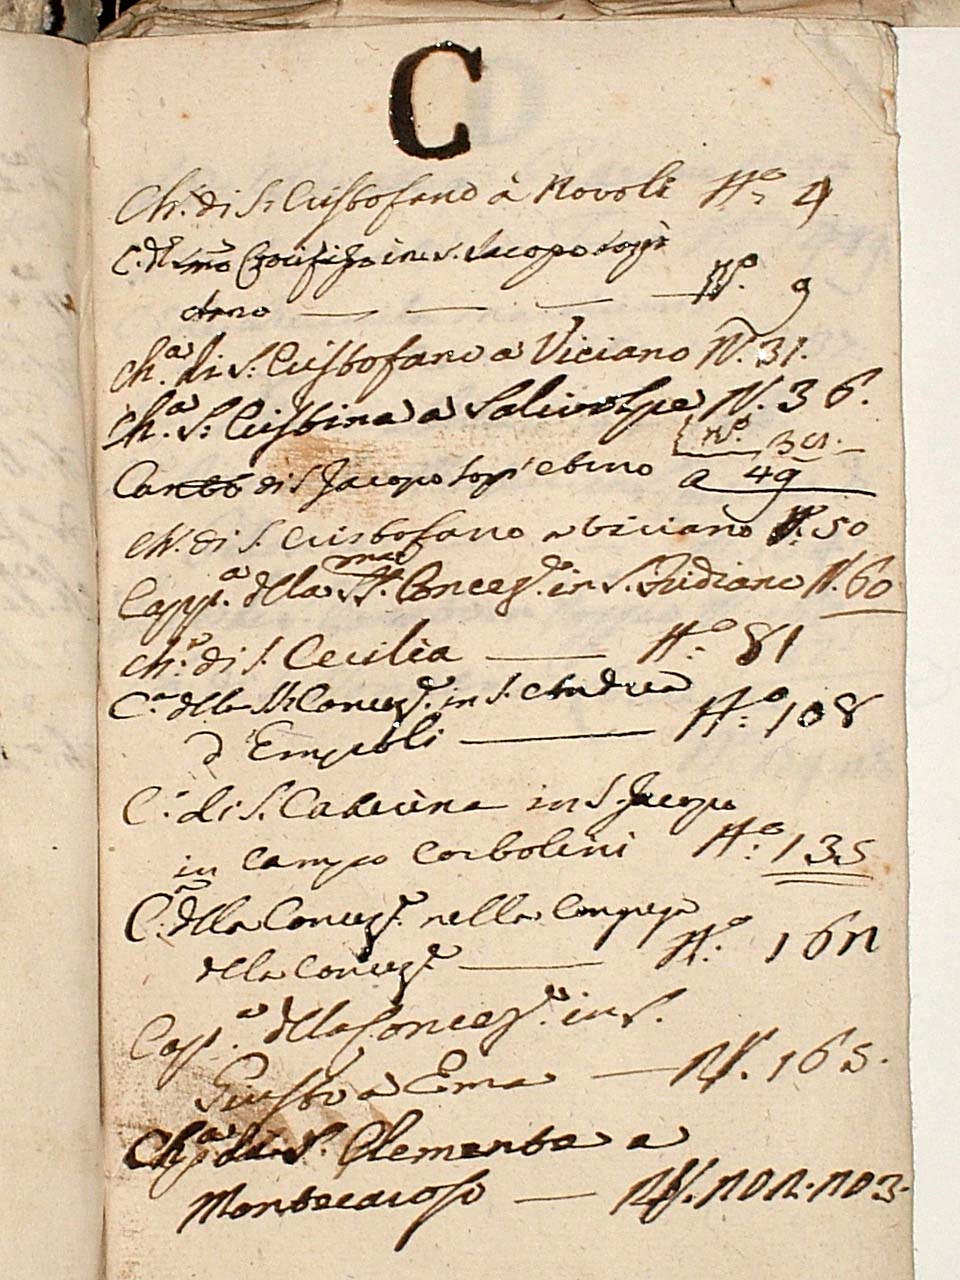 C
Ch.ª di S. Cristofano à Novoli N.º 4
C. d. SS.mo Crocifisso in S. Jacopo sopr'
Arno N.º 9
Ch.ª di S. Cristofano a Viciano N. 31.
Ch.ª S. Cristina a Salivolpe N. 36.
N.º 39.
di S. Jacopo sopr' Arno a 49
Ch. di S. Cristofano a Viciano N. 50
Capp.ª della SS.ma Concez.e in S. Fridiano N. 60
Ch.ª di S. Cecilia N.º 81
C.ª della SS. Concez.e in S. Andrea
d'Empoli N.º 108
C.ª di S. Caterina in S. Jacopo
in Campo Corbolini N.º 135
C.ª della Concez.e nella Compag.ª
della Concez.e N.º 162
Cap.ª della Concez.e in S.
Giusto a Ema N. 165.
Ch.ª di S. Clemente a
N. 202. 203.